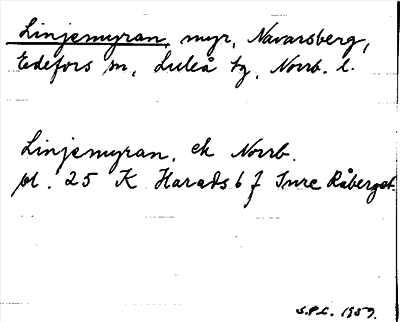 Linjemyran, myr, Navarsberg,
Edefors sn, Luleå tg, Norrb. l.
Linjemyran, ek Norrb.
bl. 25 K Harads 6 f Inre Råberget.
S.P.L. 1957.